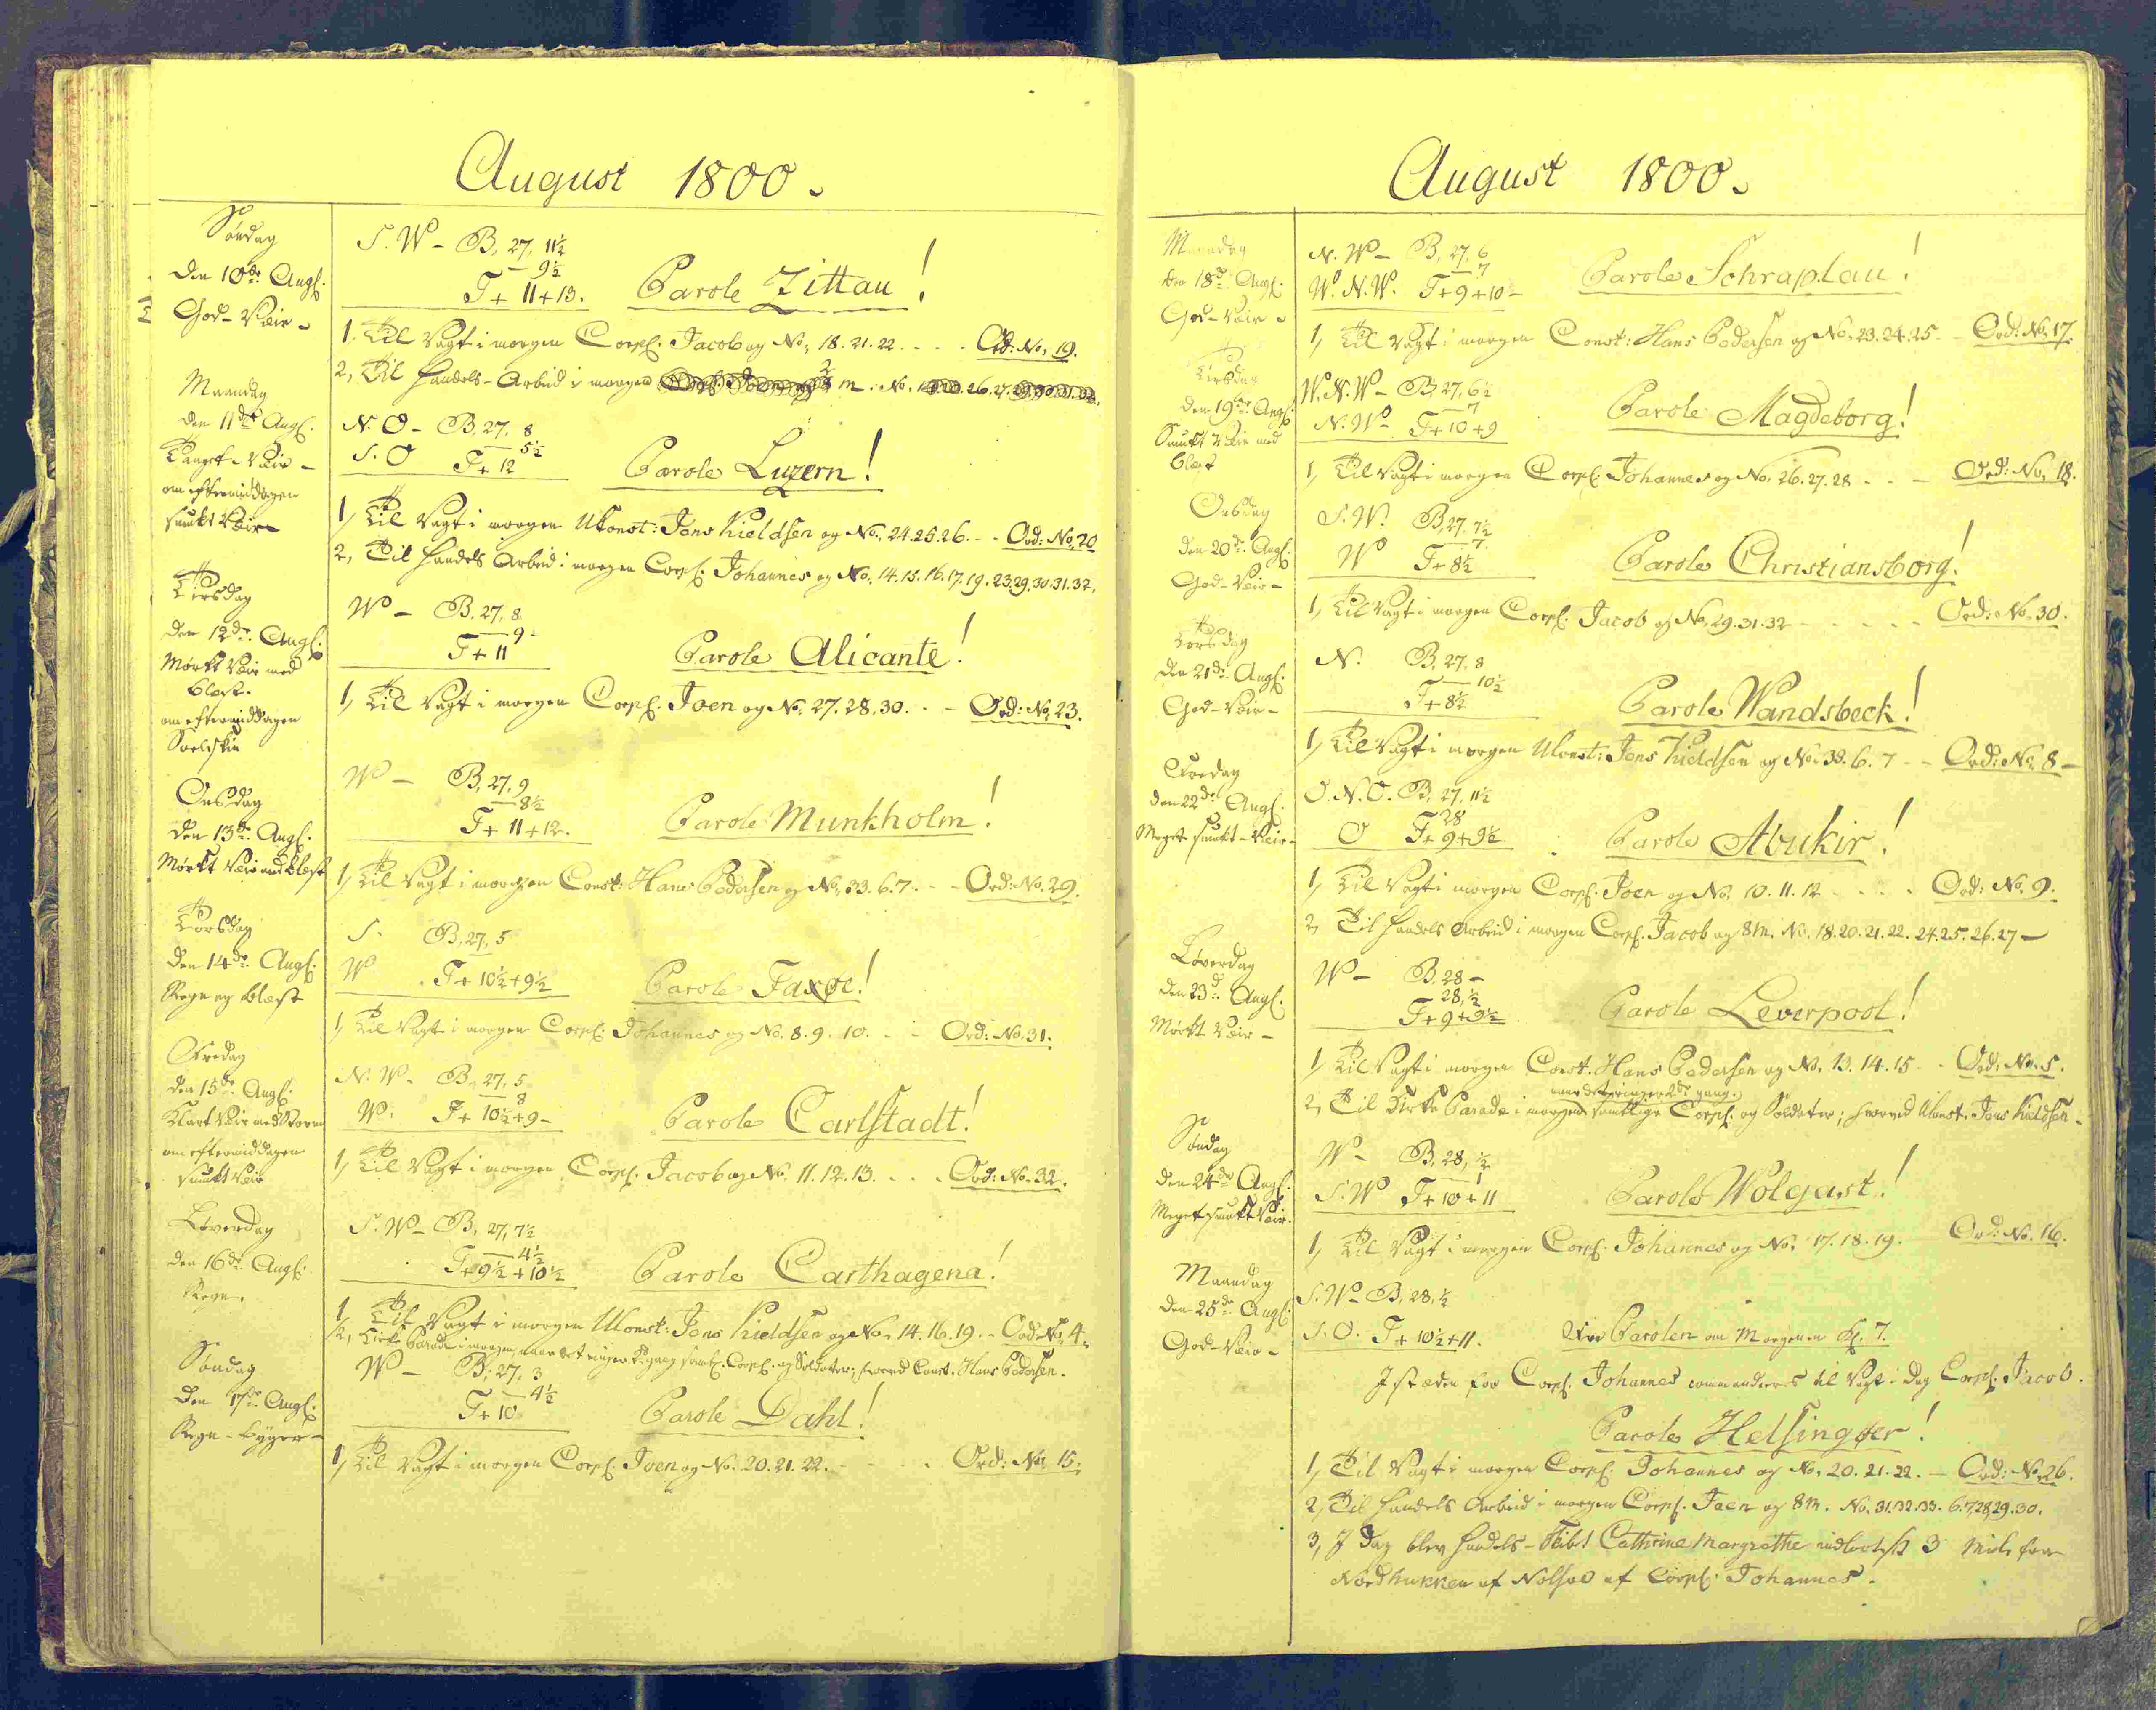 August 1800.
Søndag
den 10de Augs:
God-Veir-
S.W- B, 27, 11½
— 9½
T+ 11+13.
Parole Zittau!
1, Til Vagt i morgen Corpl: Jacob og No, 18. 21. 22. . . . Ord: No, 19.
2, Til Handels-Arbeid i morgen
Maandag
den 11de Augs:
Taaget-Veir-
om eftermiddagen
smukt Veir-
N.O- B, 27, 8
— 5½
S.O T+ 12
Parole Luzern!
1, Til Vagt i morgen Ukonst: Jens Kieldsen og No, 24. 25. 26. - - Ord: No, 20
2, Til Handels Arbeid i morgen Corpl: Johannes og No, 14. 15. 16. 17. 19. 23. 29. 30. 31. 32.
Tirsdag
den 12de Augs:
Mørkt Veir med
blæst.
om eftermiddagen
Soelskin
W- B. 27, 8
— 9-
T+ 11
Parole Alicante!
1, Til Vagt i morgen Corpl: Joen og No, 27. 28. 30. - - Ord: No, 23.
Onsdag
den 13de Augs:
Mørkt Veir med blæst
W- B, 27, 9
— 8½
T+ 11+12.
Parole Munkholm!
1, Til Vagt i morgen Const: Hans Pedersen og No, 33. 6. 7. - - Ord: No, 29.
Torsdag
den 14de Augs:
Regn og blæst
S. B, 27, 5
W. T+ 10½+9½
Parole Faxøe!
1, Til Vagt i morgen Corpl: Johannes og No. 8. 9. 10. - - Ord: No, 31.
Fredag
den 15de Augs:
Klart Veir med Storm
om eftermiddagen
smukt Veir
N.W. B, 27, 5
— 8
W. T+ 10½+9-
Parole Carlstadt!
1, Til Vagt i morgen Corpl: Jacob og No. 11. 12. 13. . . . Ord: No. 32.
Løverdag
den 16de Augs:
Regn.
S.W- B, 27, 7½
— 4½
T+ 9½+10½
Parole Carthagena!
1, Til Vagt i morgen Ukonst: Jens Kieldsen og No. 14. 16. 19. - Ord: No, 4.
2, Kirke Parade i morgen, naar det ringer 2de gang samtl: Corpl: og Soldater; hvorved Const. Hans Pedersen.
Søndag
den 17de Augs:
Regn-byger-
W- B, 27, 3
— 4½
T+ 10
Parole Dahl!
1, Til Vagt i morgen Corpl: Joen og No. 20. 21. 22. - . . . Ord: No, 15.
August 1800.
Maandag
den 18de Augs:
God-Veir-
N.W- B, 27, 6
— 7
W.N.W. T+9+10-
Parole Schraplau!
1, Til Vagt i morgen Const: Hans Pedersen og No, 23. 24. 25 - - Ord: No, 17.
Tirsdag
den 19de Augs:
Smukt Veir med
blæst
W.N.W- B, 27, 6½
— 7
N.W- T+10+9
Parole Magdeborg!
1, Til Vagt i morgen Corpl: Johannes og No. 26. 27. 28 - - - Ord: No, 18.
Onsdag
den 20de Augs:
God-Veir-
S.W. B, 27. 7½
— 7.
W T+8½
Parole Christiansborg!
1, Til Vagt i morgen Corpl: Jacob og No, 29. 31. 32 - - - - - Ord: No. 30.
Torsdag
den 21de Augs:
God-Veir-
N. B, 27. 8
— 10½
T+8½
Parole Wandsbeck!
1, Til Vagt i morgen Ukonst: Jens Kieldsen og No. 33. 6. 7 - - Ord: No, 8-
Fredag
den 22de Augs:
Meget smukt-Veir-
O.N.O. B, 27. 11½
28
O T+ 9+9½
Parole Abukir!
1, Til Vagt i morgen Corpl: Joen og No. 10. 11. 12 - . . . Ord: No, 9.
2, Til Handels Arbeid i morgen Corpl: Jacob og 8 m. No, 18. 20. 21. 22. 24. 25. 26. 27-
Løverdag
den 23de Augs:
Mørkt Veir-
W- B. 28-
28, ½
T+9+9½
Parole Leverpool!
1, Til Vagt i morgen Const. Hans Pedersen og No. 13. 14. 15 - - Ord: No. 5.
naar det ringer 2de gang.
2, Til Kirke Parade i morgen samtlige Corpl: og Soldater; hvorved Ukonst. Jens Kieldsen-
Søndag
den 24de Augs:
Meget smukt Veir.
W- B, 28, ½
1
S.W T+10+11
Parole Wolgast!
1, Til Vagt i morgen Corpl: Johannes og No, 17. 18. 19. - Ord: No. 16.
Maandag
den 25de Augs:
God-Veir-
S.W- B, 28, ½
S.O. T+10½+11.
Parolen om Morgenen Kl: 7.
I steden for Corpl: Johannes commanderes til Vagt i dag Corpl: Jacob.
Parole Helsingøer!
1, Til Vagt i morgen Corpl: Johannes og No, 20. 21. 22. - Ord: No, 26.
2, Til Handels Arbeid i morgen Corpl: Joen og 8 m. No. 31. 32. 33. 6. 7. 28. 29. 30.
3, I Dag blev Handels-Skibet Cathrine Margrethe indlodset 3 Mile fra
Nordhukken af Nolsøe af Corpl: Johannes.